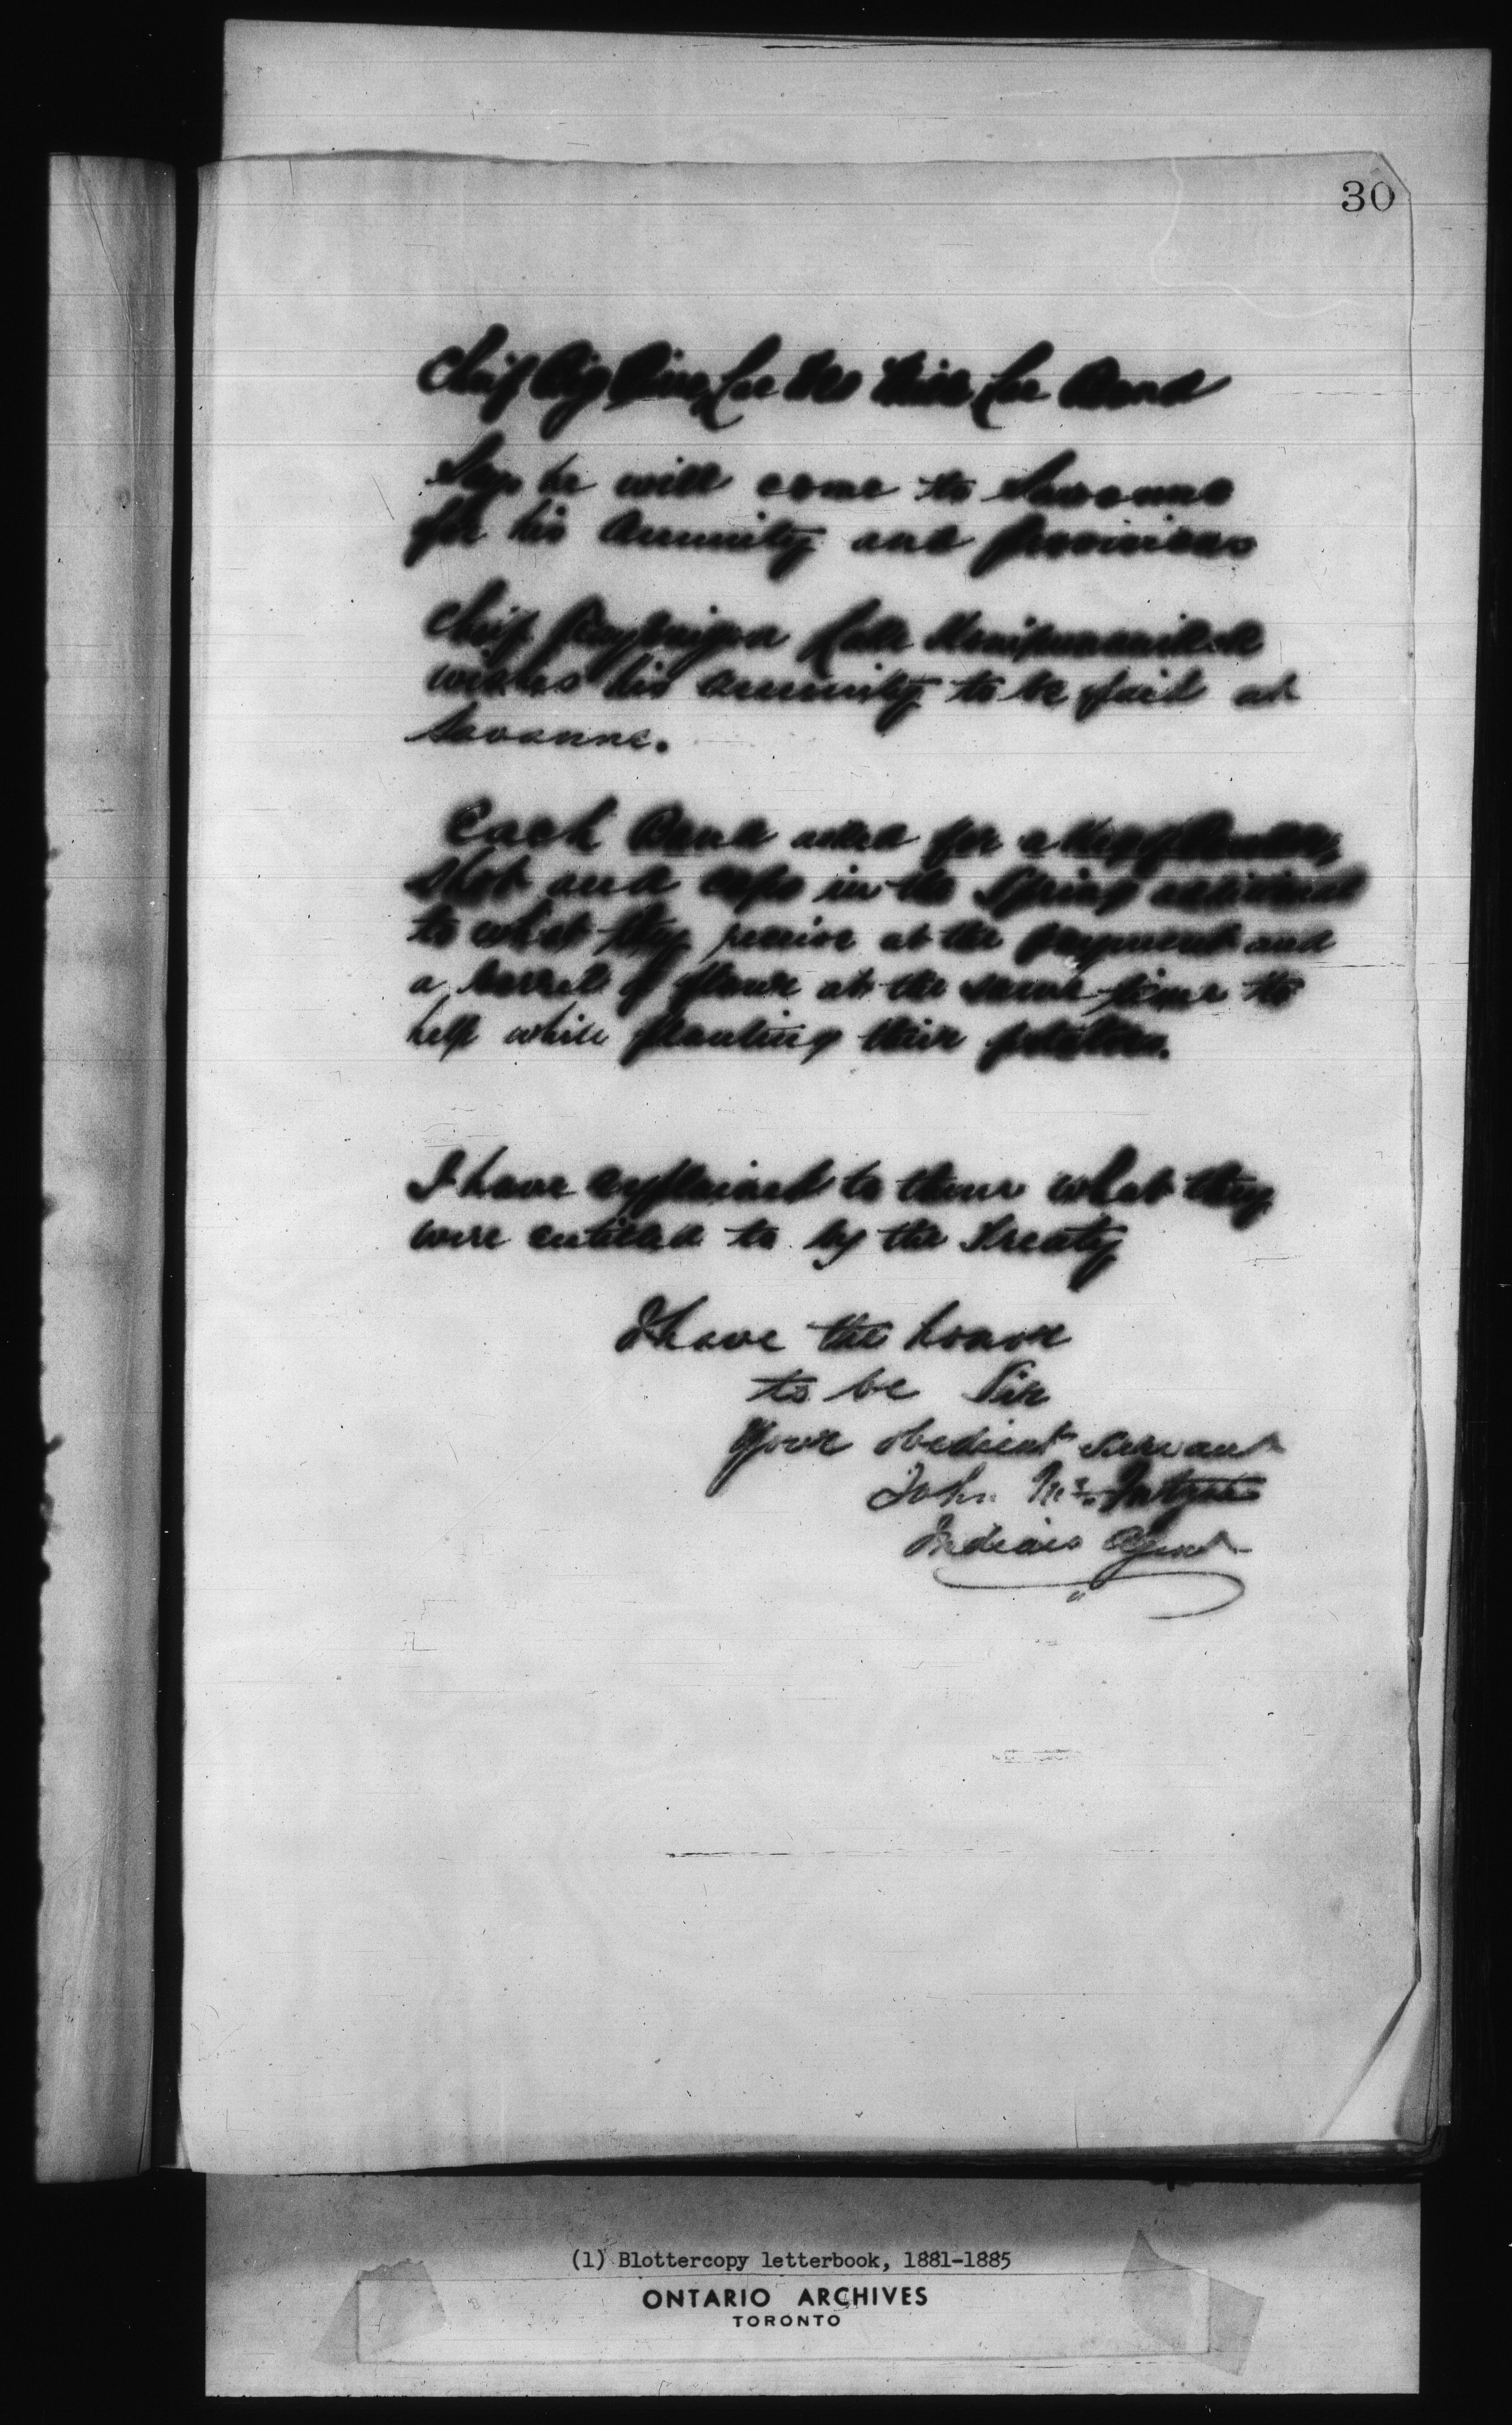 30
Chief Big Lac Band
Says he will come to Savanne
for his Annuity and provisions
Chief Lake
wishes his annuity to be paid at
Savanne.
Each Band asked for a Keg of Powder,
Shot and caps in the Spring additional
to what they receive at the payment and
a barrel of flour at the same time to
help while planting their potatoes.
I have explained to them what they
were entitled to by the Treaty
I have the honor
to be Sir
Your obedient servant
John McIntyre
Indian Agent
(1) Blottercopy letterbook, 1881-1885
ONTARIO ARCHIVES
TORONTO